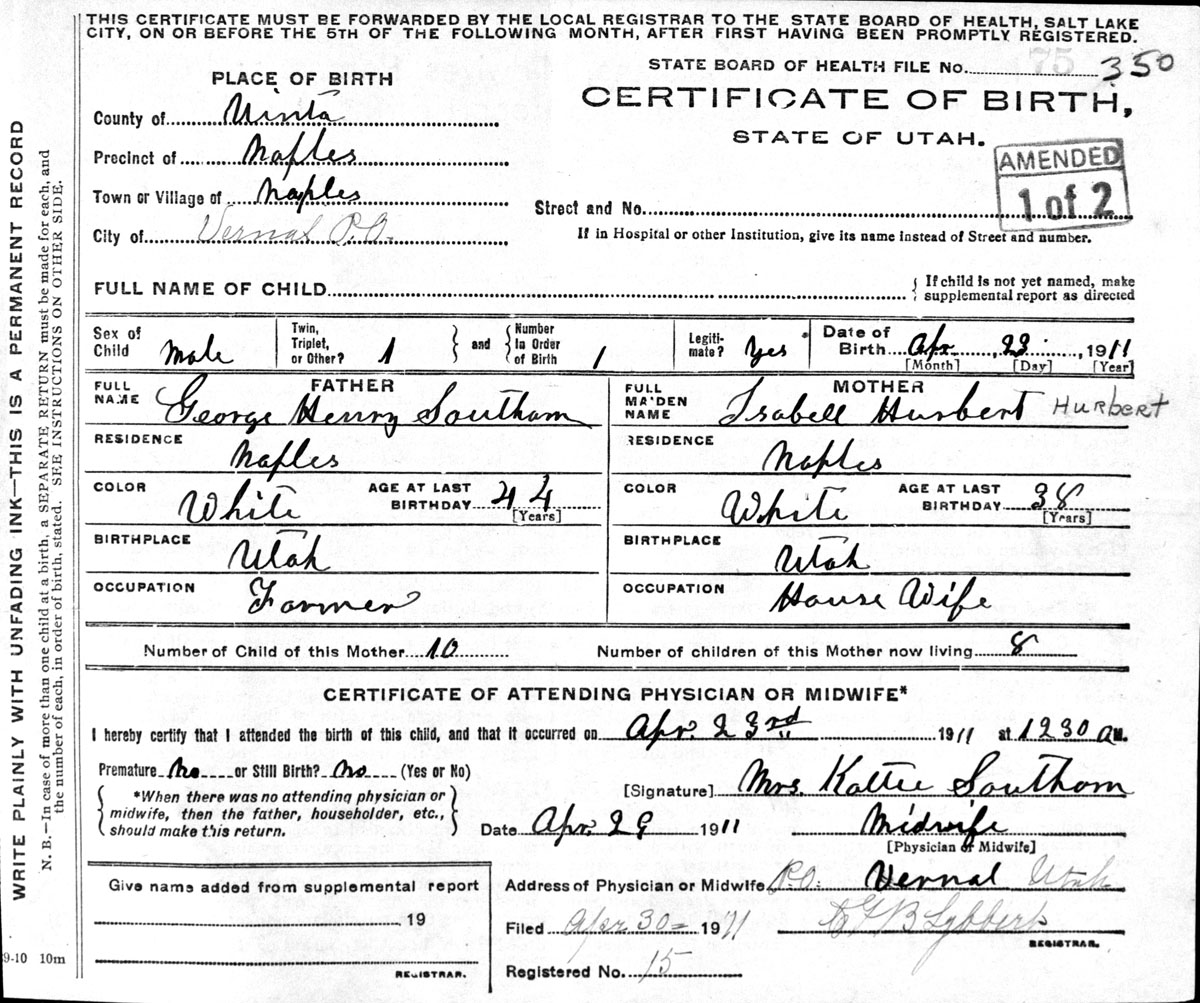 THIS CERTIFICATE MUST BE FORWARDED BY THE LOCAL REGISTRAR TO THE STATE BOARD OF HEALTH, SALT LAKE
CITY, ON OR BEFORE THE 5TH OF THE FOLLOWING MONTH, AFTER FIRST HAVING BEEN PROMPTLY REGISTERED.
STATE BOARD OF HEALTH FILE No. 75 350
PLACE OF BIRTH
CERTIFICATE OF BIRTH,
STATE OF UTAH.
AMENDED
1 of 2
County of Uinta
Precinct of Naples
Town or Village of Naples
City of Vernal P.O.
Street and No.
If in Hospital or other Institution, give its name instead of Street and number.
FULL NAME OF CHILD
{ If child is not yet named, make
supplemental report as directed
Sex of Child Male
Twin, Triplet, or Other? 1 } and { Number In Order of Birth 1
Legiti-mate? Yes
Date of Birth Apr. 23, 1911
[Month] [Day] [Year]
FULL NAME FATHER George Henry Southam
FULL MAIDEN NAME MOTHER Isabell Hurbert HURBERT
RESIDENCE Naples
RESIDENCE Naples
COLOR White AGE AT LAST BIRTHDAY 44 [Years]
COLOR White AGE AT LAST BIRTHDAY 38 [Years]
BIRTHPLACE Utah
BIRTHPLACE Utah
OCCUPATION Farmer
OCCUPATION House Wife
Number of Child of this Mother 10 Number of children of this Mother now living 8
CERTIFICATE OF ATTENDING PHYSICIAN OR MIDWIFE*
I hereby certify that I attended the birth of this child, and that it occurred on Apr. 23rd 1911 at 1230 a M.
Premature No or Still Birth? No (Yes or No)
[Signature] Mrs. Kattie Southam
{ *When there was no attending physician or
midwife, then the father, householder, etc.,
should make this return. }
Date Apr. 29 1911 Midwife
[Physician or Midwife]
Give name added from supplemental report
19
REGISTRAR.
Address of Physician or Midwife P.O. Vernal Utah
Filed Apr 30 1911 Lybbert
REGISTRAR.
Registered No. 15
9-10 10m
WRITE PLAINLY WITH UNFADING INK—THIS IS A PERMANENT RECORD
N. B.—In case of more than one child at a birth, a SEPARATE RETURN must be made for each, and
the number of each, in order of birth, stated. SEE INSTRUCTIONS ON OTHER SIDE.